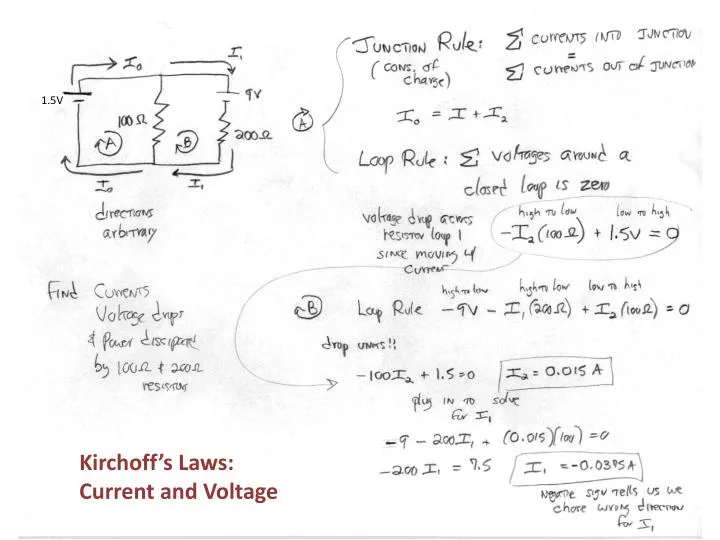 JUNCTION RULE: Σ CURRENTS INTO JUNCTION
(CONS. OF charge) = Σ CURRENTS OUT OF JUNCTION
I₀ I₁
1.5V 9V
100Ω 200Ω
A B
I₀ I₁
directions
arbitrary
A
I₀ = I + I₂
Loop Rule: Σ Voltages around a
closed loop is zero
voltage drop across
resistor loop 1
since moving w/
current
high to low low to high
-I₂(100Ω) + 1.5V = 0
Find Currents
Voltage drops
& Power dissipated
by 100Ω & 200Ω
resistors
high to low high to low low to high
B Loop Rule -9V - I₁(200Ω) + I₂(100Ω) = 0
drop units!!
-100I₂ + 1.5 = 0 I₂ = 0.015 A
plug in to solve
for I₁
-9 - 200I₁ + (0.015)(100) = 0
-200 I₁ = 7.5 I₁ = -0.0375A
Negative sign tells us we
chose wrong direction
for I₁
Kirchoff's Laws:
Current and Voltage